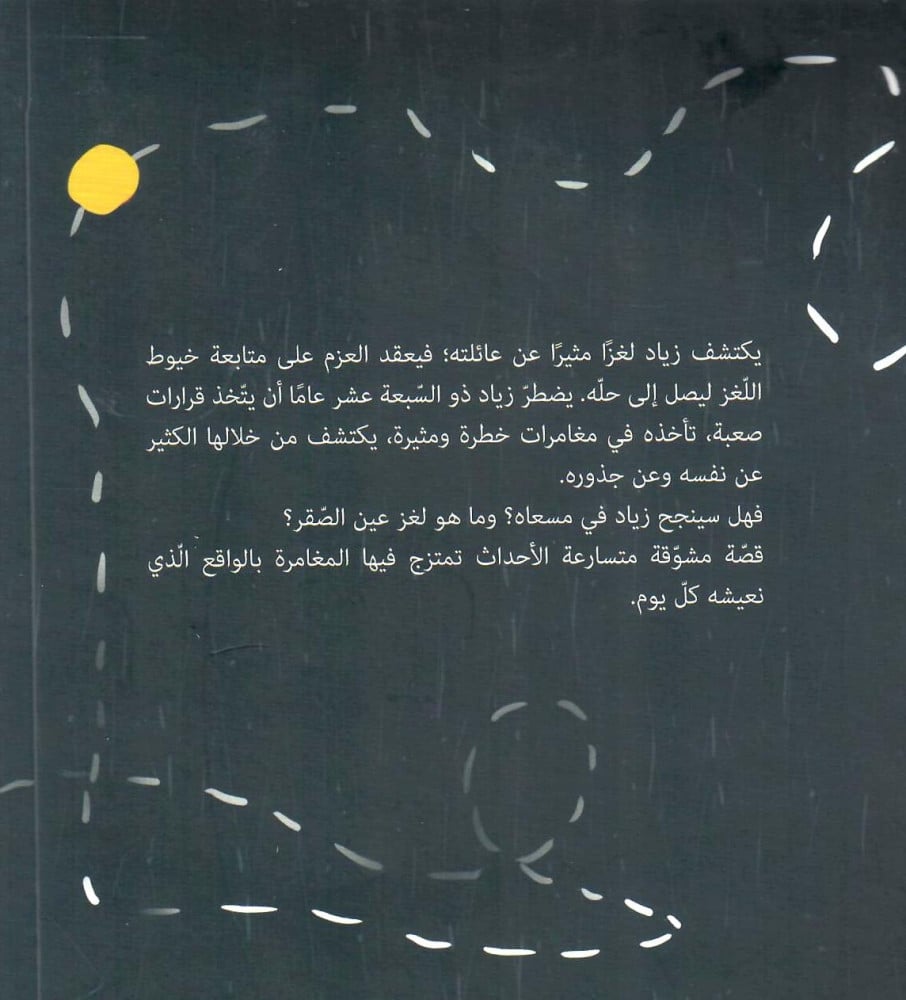 يكتشف زياد لغزًا مثيرًا عن عائلته؛ فيعقد العزم على متابعة خيوط
اللّغز ليصل إلى حلّه. يضطرّ زياد ذو السّبعة عشر عامًا أن يتّخذ قرارات
صعبة، تأخذه في مغامرات خطرة ومثيرة، يكتشف من خلالها الكثير
عن نفسه وعن جذوره.
فهل سينجح زياد في مسعاه؟ وما هو لغز عين الصّقر؟
قصّة مشوّقة متسارعة الأحداث تمتزج فيها المغامرة بالواقع الّذي
نعيشه كلّ يوم.